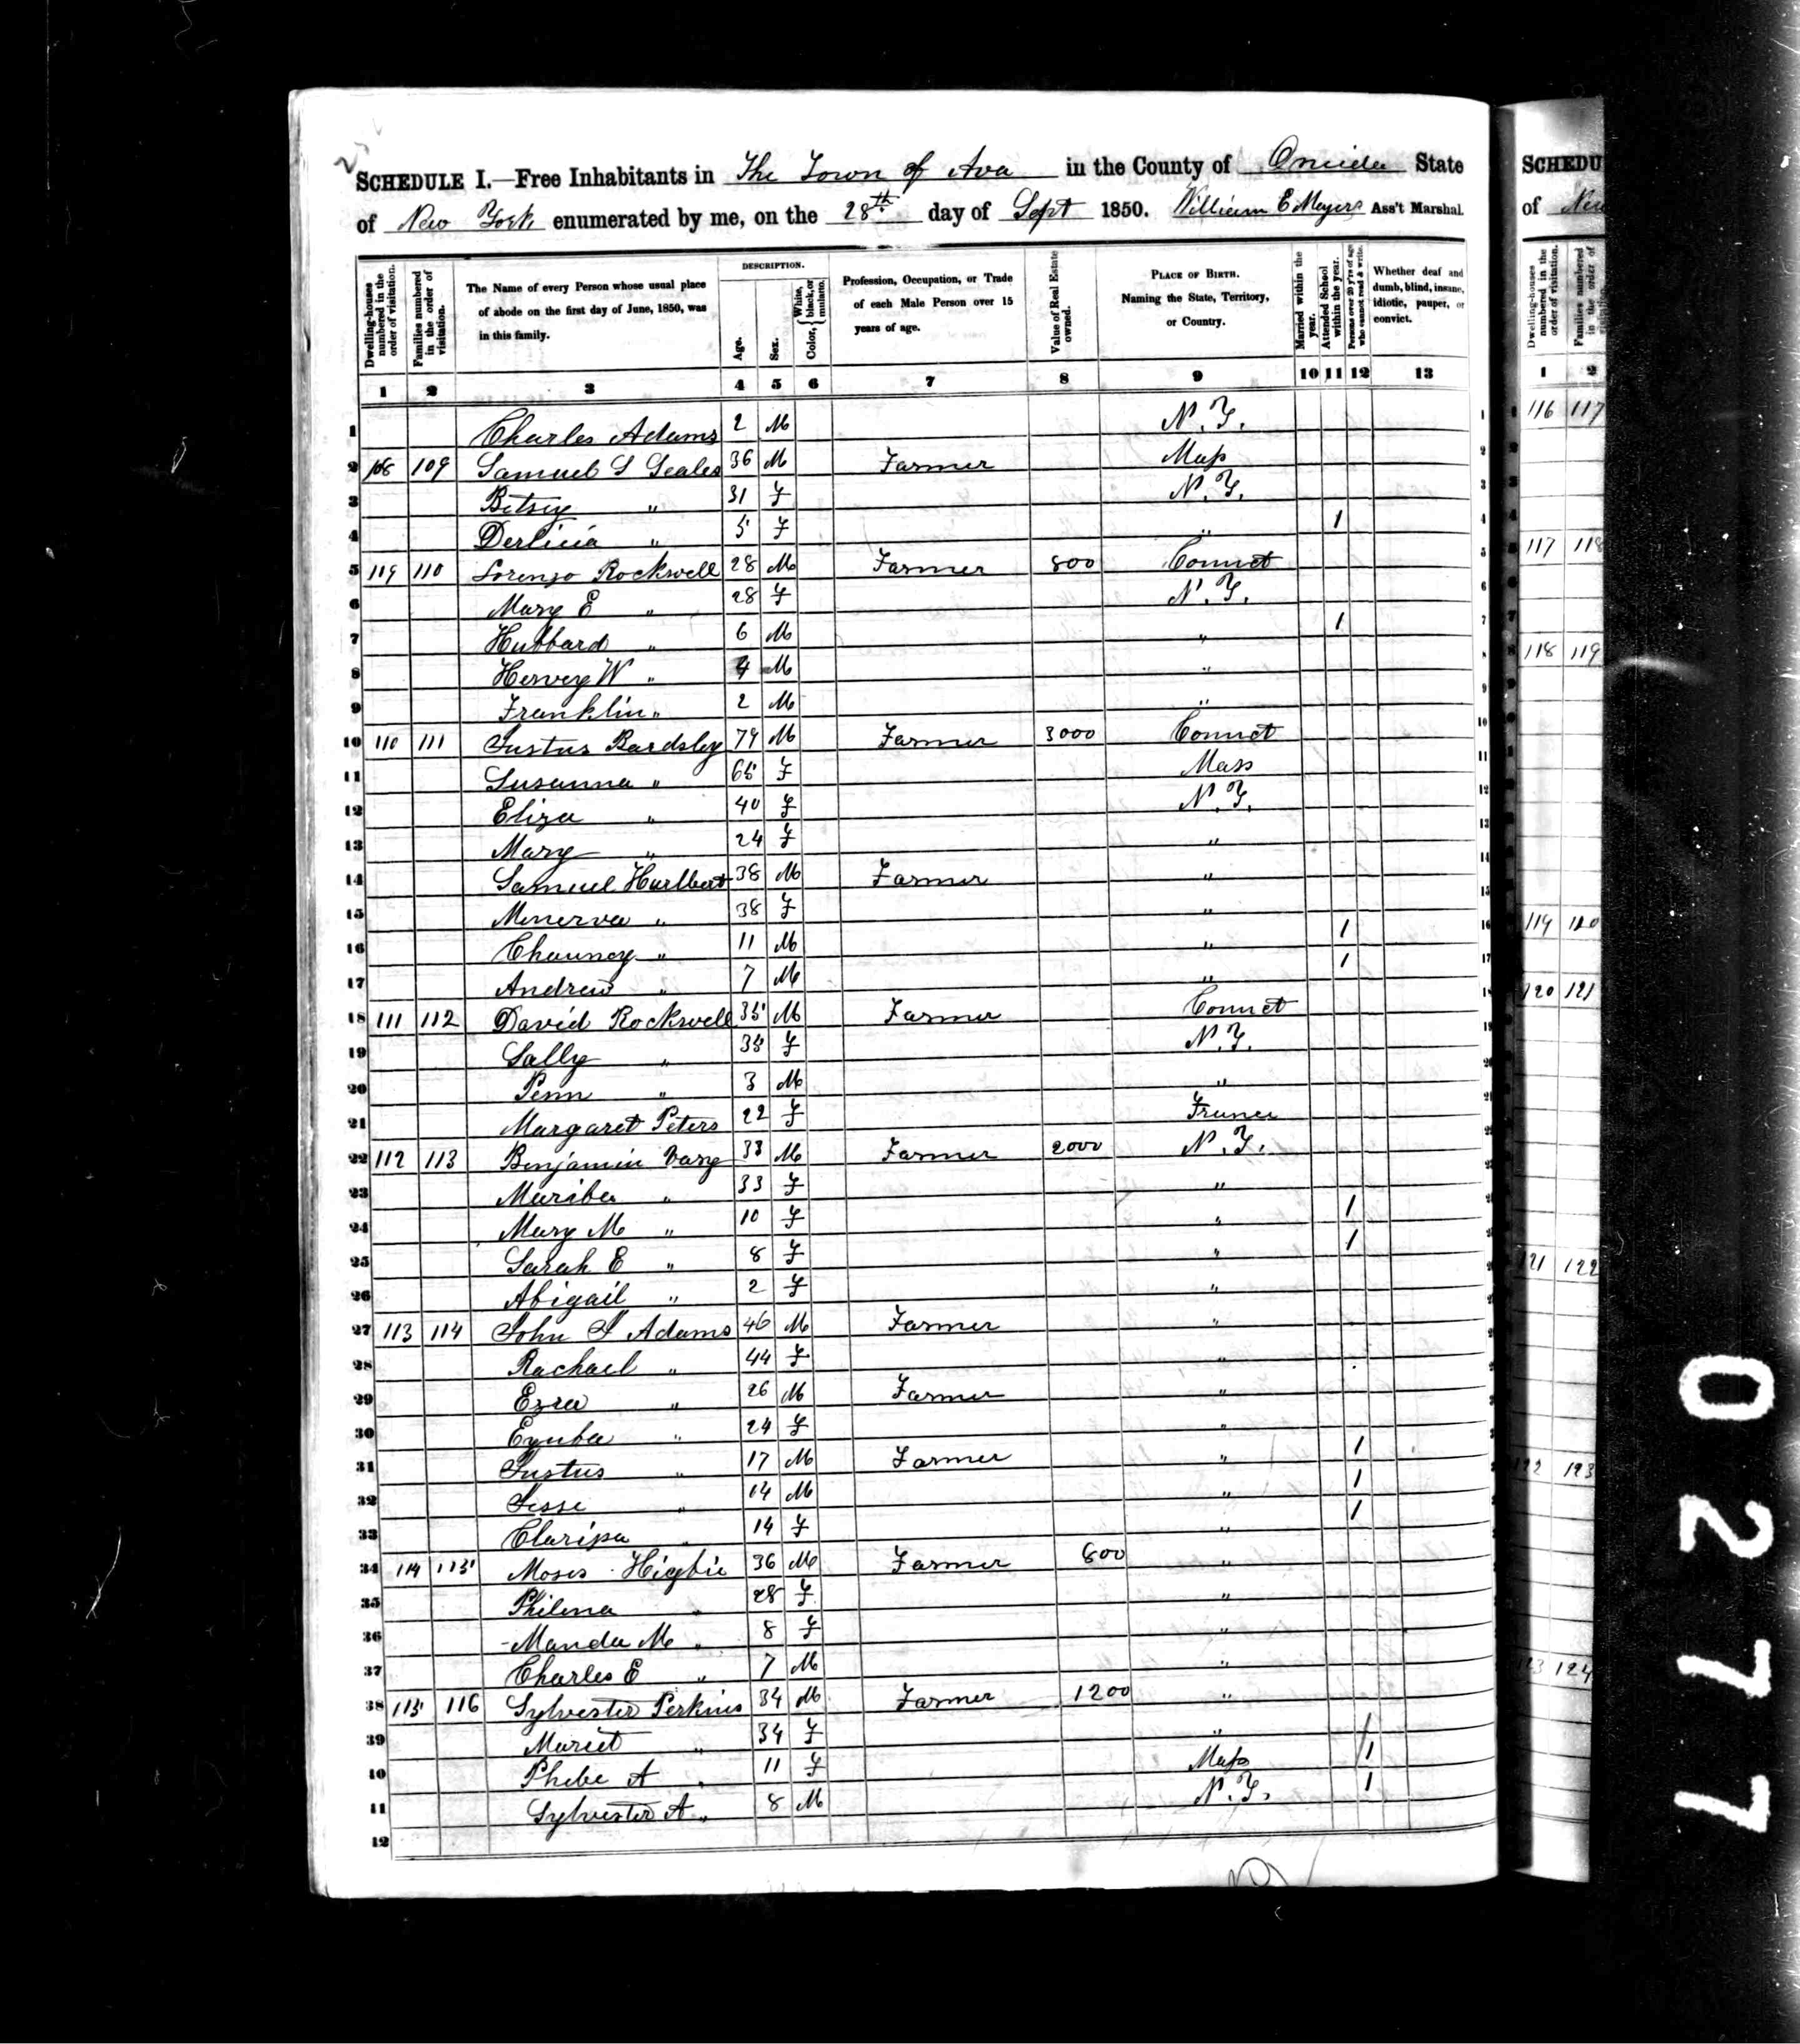 SCHEDULE I.—Free Inhabitants in The Town of Ava in the County of Oneida State
of New York enumerated by me, on the 28th day of Sept 1850. William E Meyers Ass't Marshal.
Dwelling-houses numbered in the order of visitation.
Families numbered in the order of visitation.
The Name of every Person whose usual place of abode on the first day of June, 1850, was in this family.
DESCRIPTION.
Age.
Sex.
Color, White, black, or mulatto.
Profession, Occupation, or Trade of each Male Person over 15 years of age.
Value of Real Estate owned.
PLACE OF BIRTH. Naming the State, Territory, or Country.
Married within the year.
Attended School within the year.
Persons over 20 y'rs of age who cannot read & write.
Whether deaf and dumb, blind, insane, idiotic, pauper, or convict.
1 2 3 4 5 6 7 8 9 10 11 12 13
1 Charles Adams 2 M N.Y. 1
2 108 109 Samuel S Scales 36 M Farmer Mass 2
3 Betsey " 31 F N.Y. 3
4 " 5 F " 1 4
5 119 110 Lorenzo Rockwell 28 M Farmer 800 Connct 5
6 Mary E " 28 F N.Y. 6
7 Hubbard " 6 M " 1 7
8 Hervey W " 4 M " 8
9 Franklin " 2 M " 9
10 110 111 Justus Bardsley 79 M Farmer 3000 Connct 10
11 Susanna " 65 F Mass 11
12 Eliza " 40 F N.Y. 12
13 Mary " 24 F " 13
14 Samuel Hurlbert 38 M Farmer " 14
15 Minerva " 38 F " 15
16 Chauncy " 11 M " 1 16
17 Andrew " 7 M " 1 17
18 111 112 David Rockwell 35 M Farmer Connct
19 Sally " 35 F N.Y.
20 Penn " 3 M "
21 Margaret Peters 22 F France
22 112 113 Benjamin Vary 33 M Farmer 2000 N.Y.
23 Mariba " 33 F "
24 Mary M " 10 F " 1
25 Sarah E " 8 F " 1
26 Abigail " 2 F "
27 113 114 John J Adams 46 M Farmer "
28 Rachael " 44 F "
29 Ezra " 26 M Farmer "
30 " 24 F "
31 Justus " 17 M Farmer " 1
32 Jesse " 14 M " 1
33 Clarissa " 14 F " 1
34 114 115 Moses Higbie 36 M Farmer 600 "
35 Philena " 28 F "
36 Manda M " 8 F "
37 Charles E " 7 M "
38 115 116 Sylvester Perkins 34 M Farmer 1200 "
39 Mariet " 34 F "
10 Phebe A " 11 F Mass 1
11 Sylvester A " 8 M N.Y. 1
12
SCHEDU
of New
Dwelling-houses numbered in the order of visitation.
Families numbered in the order of
1 2
116 117
117 118
118 119
119 120
120 121
121 122
122 123
123 124
0277